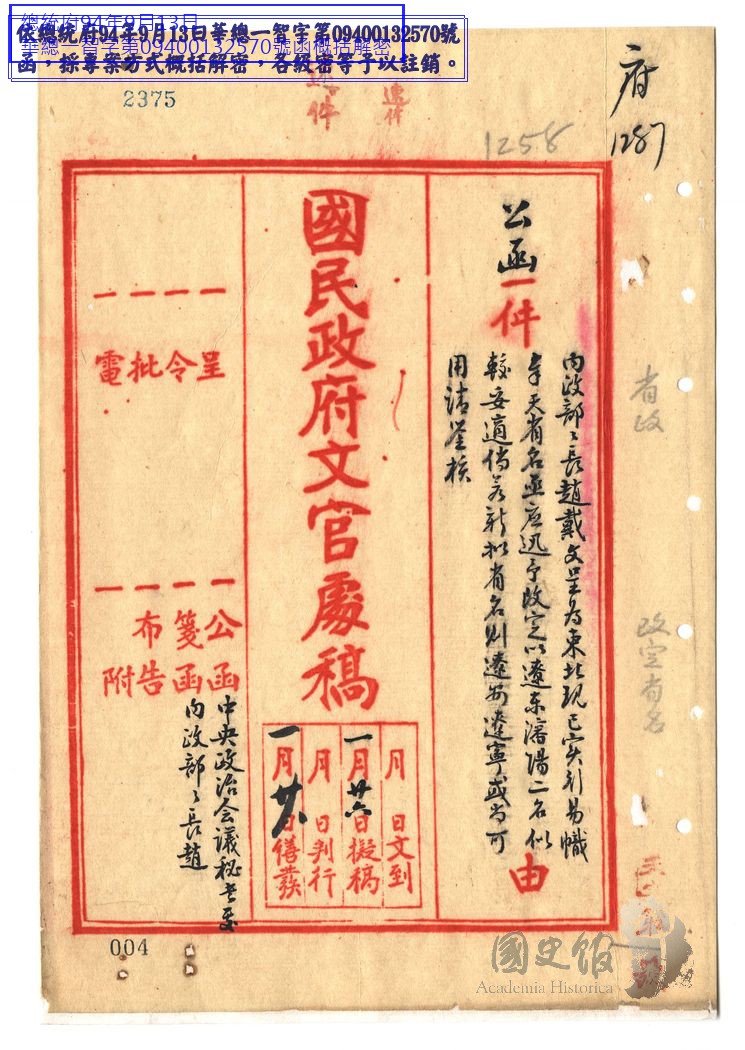 總統府94年9月13日
華總一智字第09400132570號函概括解密
依總統府94年9月13日華總一智字第09400132570號
函，採專案方式概括解密，各級密等予以註銷。
2375
速件
府
1287
1258
公函一件
內政部々長趙戴文呈為東北現已實行易幟
奉天省名亟應迅予改定以遼東瀋陽二名似
較妥適倘若新擬省名則遼安遼寧或尚可
用請鑒核
由
國民政府文官處稿
月 日文到
一月廿六日擬稿
月 日判行
一月廿八日繕發
呈
令
批
電
公函
箋函
布告
附
中央政治會議秘書處
內政部々長趙
省政
改定省名
004
國史館
Academia Historica